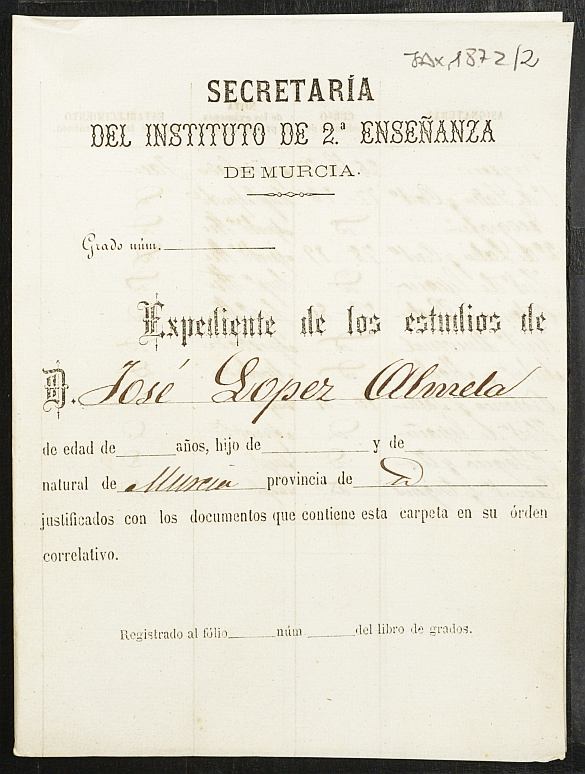 JAX,1872/2
SECRETARÍA
DEL INSTITUTO DE 2.ª ENSEÑANZA
DE MURCIA.
Grado núm.
Expediente de los estudios de
D. José Lopez Almela
de edad de años, hijo de y de
natural de Murcia provincia de Id
justificados con los documentos que contiene esta carpeta en su órden
correlativo.
Registrado al fólio núm del libro de grados.